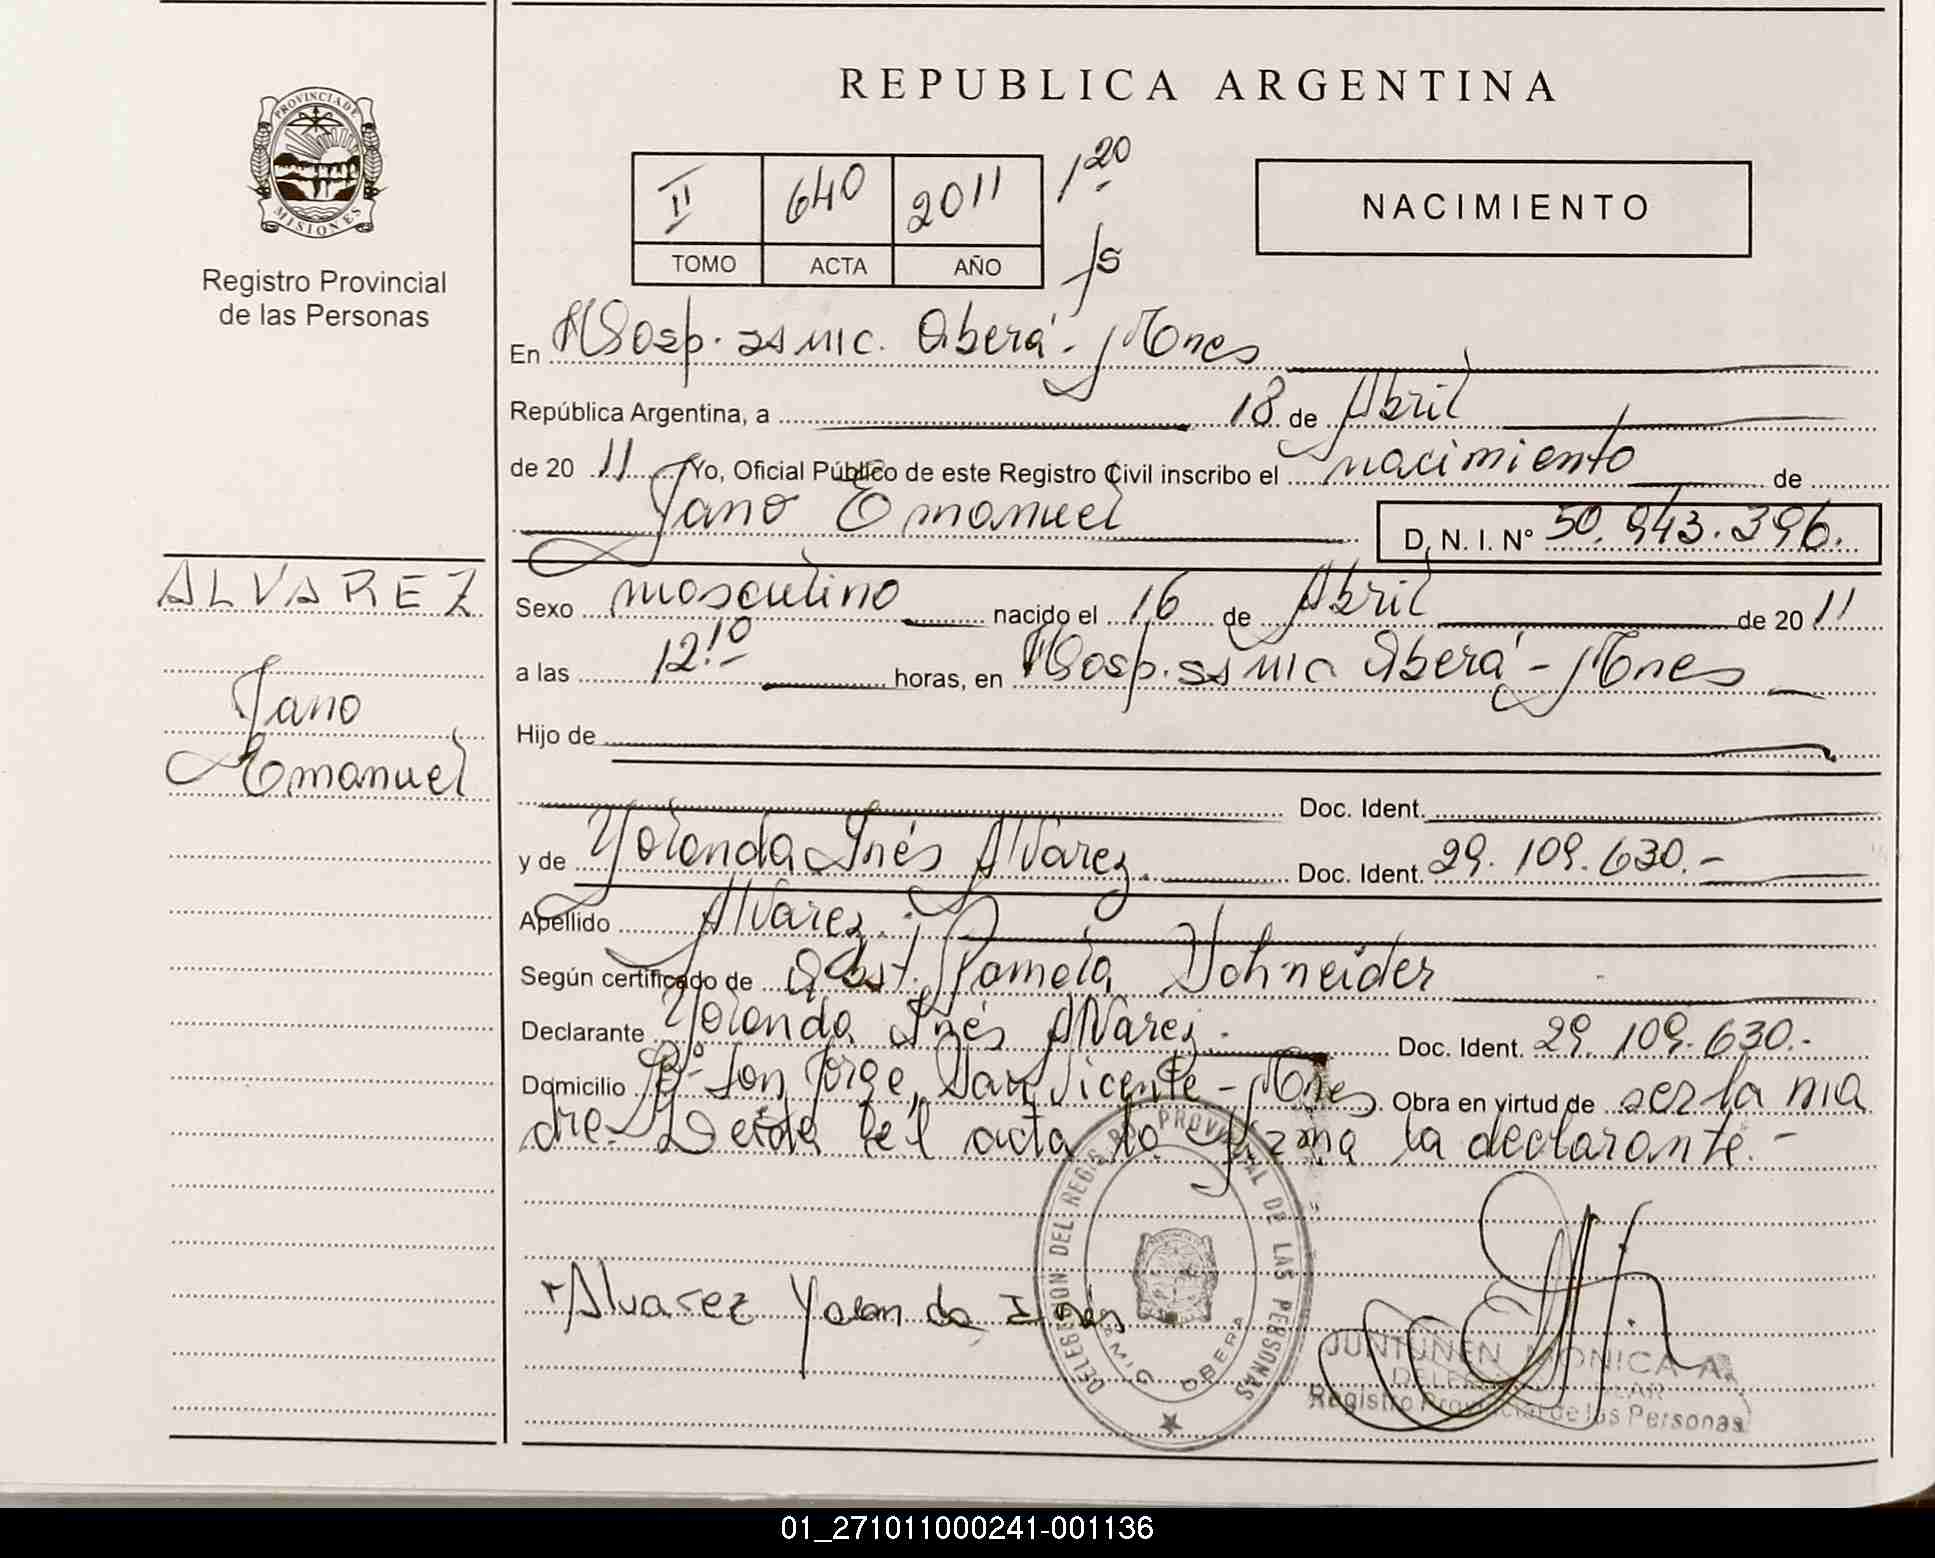 PROVINCIA DE
MISIONES
Registro Provincial
de las Personas
ALVAREZ
Jano
Emanuel
REPUBLICA ARGENTINA
II 640 2011 1 20
TOMO ACTA AÑO
NACIMIENTO
En Hosp. ssmic. Oberá - Mnes
República Argentina, a 18 de Abril
de 20 11 Yo, Oficial Público de este Registro Civil inscribo el nacimiento de
Jano Emanuel D. N. I. Nº 50.943.396.
Sexo masculino nacido el 16 de Abril de 20 11
a las 12:10 horas, en Hosp. ssmic Oberá - Mnes
Hijo de
Doc. Ident.
y de Yolanda Inés Alvarez. Doc. Ident. 29.109.630.-
Apellido Alvarez.
Según certificado de Obst. Pamela Schneider
Declarante Yolanda Inés Alvarez. Doc. Ident. 29.109.630.-
Domicilio Bº San Jorge, San Vicente - Mnes Obra en virtud de ser la ma
dre. Leida el acta la firma la declarante.-
Alvarez Yolanda Inés
DELEGACION DEL REGISTRO PROVINCIAL DE LAS PERSONAS
OBERA
JUNTUNEN MONICA A.
Registro Provincial de las Personas
01_271011000241-001136